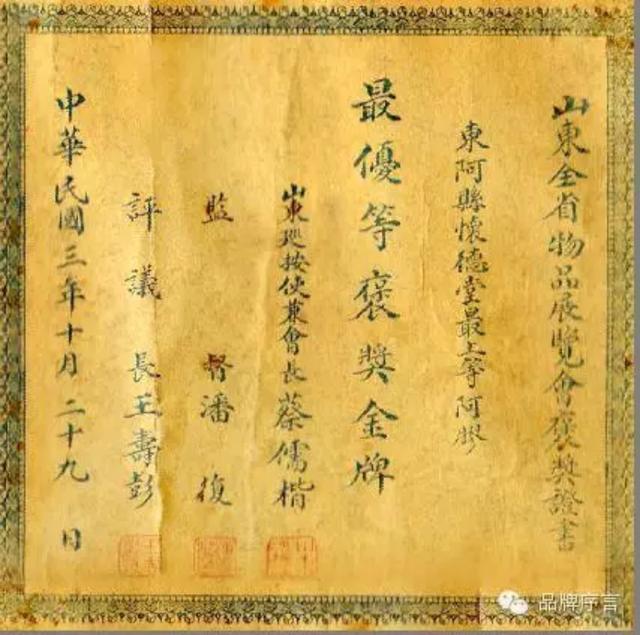 山東全省物品展覽會褒奬證書
東阿縣懷德堂最上等阿膠
最優等褒奬金牌
山東巡按使兼會長蔡儒楷
監督潘復
評議長王壽彭
中華民國三年十月二十九日
品牌序言